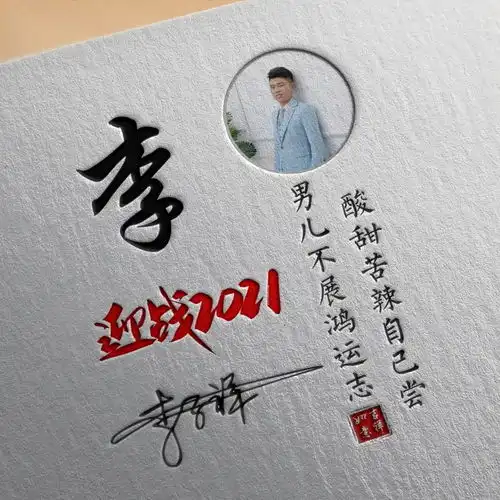 李
迎战2021
酸甜苦辣自己尝
男儿不展鸿运志
吉祥
如意